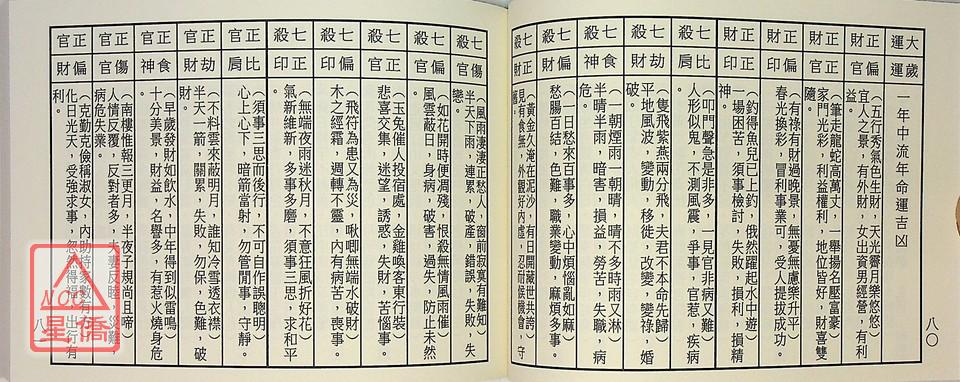 大運
歲運
一年中流年命運吉凶
正財
偏官
（五行秀氣色生財，天光霽月樂悠悠）
宜人之景，有偏外財，女出資男經營，有利
益。
正官
正財
（筆走龍蛇高萬丈，一舉揚名壓富豪）
家門光彩，利益權利，地位皆好，財喜雙
隨。
正財
正官
（有祿有財過晚景，無憂無慮樂升平）
春光換彩，冒利事業可，受人提拔成功。
七殺
正印
（釣得魚兒已上釣，俄然躍起水中遊）
一場困苦，須事檢討，失敗，損利，損精
神。
七殺
比肩
（叩門聲急是非多，一見官非病又難）
人形似鬼，不測風震，爭事，官惹，疾病
七殺
劫財
（隻飛紫燕兩分飛，夫君不本命先歸）
平地風波，變動，移徙，改變，變祿，婚
破。
七殺
食神
（一朝煙雨一朝晴，晴不多時雨又淋）
半晴半雨，暗害，損益，勞苦，失職，病
七殺
偏財
（一日愁來百事多，心中煩惱亂如麻）
愁腸百結，色難，職業變動，麻煩多事。
七殺
正財
（黃金久淹在泥沙，有日開藏世共誇）
七殺
傷官
（風雨淒淒正愁人，窗前寂寞有難知）
半天下雨，連累，破產，錯誤，失敗，失
戀。
七殺
偏官
（如花開時便凋殘，恨殺無情風雨催）
風雲蔽日，身病，破害，過失，防止未然
七殺
正官
（玉兔催人投宿處，金雞喚客東行裝）
悲喜交集，迷望，誘惑，失財，苦惱事。
七殺
偏印
（飛符為患又為災，啾唧無端水破財）
木之經霜，週轉不靈，內有病苦，喪事。
七殺
正印
（無端夜雨迷秋月，不意狂風折好花）
氣新維新，多事多磨，須事三思，求和平
正官
比肩
（須事三思而後行，不可自作誤聰明）
心上心下，暗箭當射，勿管閒事，守靜。
正官
劫財
（不料雲來蔽明月，誰知冷雪透衣襟）
半天一箭，關累，失敗，勿保，色難，破
正官
食神
（早歲發財如飲水，中年得到似雷鳴）
十分美景，財益，名譽多，有惹火燒身危
正官
傷官
（南樓惟報三更月，半夜子規尚且啼）
人情反覆，反對者多，夫妻反睦，災難，
病危失業。
正官
偏財
（克勤克儉稱淑女，內助持家數有
化日光天，受強求事，忽然得福，出行有
利。
八〇
八一
NCC
星僑